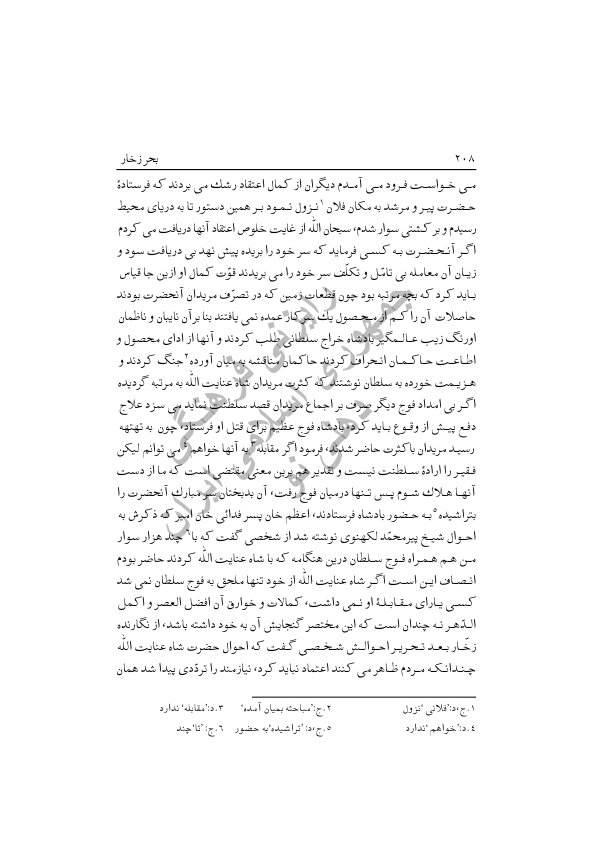 ۲۰۸ بحر زخار
می خواست فرود می آمدم دیگران از کمال اعتقاد رشک می بردند که فرستادهٔ
حضرت پیر و مرشد به مکان فلان۱ نزول نمود بر همین دستور تا به دریای محیط
رسیدم و بر کشتی سوار شدم، سبحان الله از غایت خلوص اعتقاد آنها دریافت می کردم
اگر آنحضرت به کسی فرماید که سر خود را بریده پیش نهد بی دریافت سود و
زیان آن معامله بی تامّل و تکلّف سر خود را می بریدند قوّت کمال او ازین جا قیاس
باید کرد که بچه مرتبه بود چون قطعات زمین که در تصرّف مریدان آنحضرت بودند
حاصلات آن را کم از محصول یك سرکار عمده نمی یافتند بنا برآن نایبان و ناظمان
اورنگ زیب عالمگیر بادشاه خراج سلطانی طلب کردند و آنها از ادای محصول و
اطاعت حاکمان انحراف کردند حاکمان مناقشه به میان آورده۲ جنگ کردند و
هزیمت خورده به سلطان نوشتند که کثرت مریدان شاه عنایت الله به مرتبه گردیده
اگر بی امداد فوج دیگر صرف بر اجماع مریدان قصد سلطنت نماید می سزد علاج
دفع پیش از وقوع باید کرد، بادشاه فوج عظیم برای قتل او فرستاد، چون به تهتهه
رسید مریدان باکثرت حاضر شدند، فرمود اگر مقابله۳ به آنها خواهم۴ می توانم لیکن
فقیر را ارادهٔ سلطنت نیست و تقدیر هم برین معنی مقتضی است که ما از دست
آنها هلاك شوم پس تنها درمیان فوج رفت، آن بدبختان سر مبارك آنحضرت را
بتراشیده۵ به حضور بادشاه فرستادند، اعظم خان پسر فدائی خان امیر که ذکرش به
احوال شیخ پیرمحمّد لکهنوی نوشته شد از شخصی گفت که با۶ چند هزار سوار
من هم همراه فوج سلطان درین هنگامه که با شاه عنایت الله کردند حاضر بودم
انصاف این است اگر شاه عنایت الله از خود تنها ملحق به فوج سلطان نمی شد
کسی یارای مقابلهٔ او نمی داشت، کمالات و خوارق آن افضل العصر و اکمل
الدّهر نه چندان است که این مختصر گنجایش آن به خود داشته باشد، از نگارنده
زخّار بعد تحریر احوالش شخصی گفت که احوال حضرت شاه عنایت الله
چندانکه مردم ظاهر می کنند اعتماد نباید کرد، نیازمند را تردّدی پیدا شد همان
۱.ج،د:'فلانی' نزول ۲.ج:'مباحثه بمیان آمده' ۳.د:'مقابله' ندارد
۴.د:'خواهم' ندارد ۵.ج،د: 'تراشیده' به حضور ۶.ج: 'تا' چند